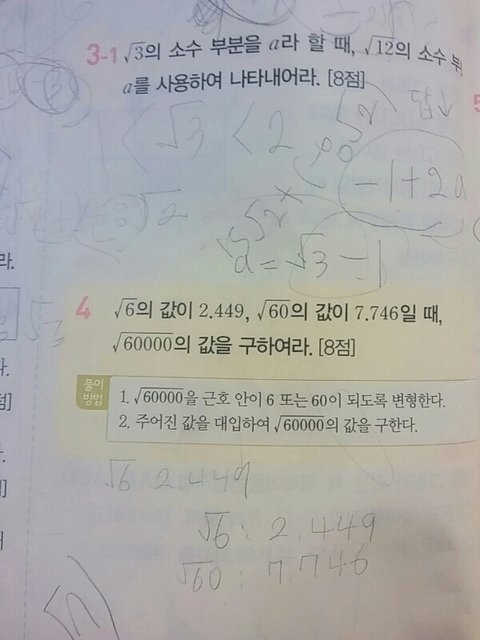 3-1 √3의 소수 부분을 a라 할 때, √12의 소수 부
a를 사용하여 나타내어라. [8점]
1 < √3 < 2
답↓
-1+2a
a = √3 - 1
4 √6의 값이 2.449, √60의 값이 7.746일 때,
√60000의 값을 구하여라. [8점]
풀이
방법
1. √60000을 근호 안이 6 또는 60이 되도록 변형한다.
2. 주어진 값을 대입하여 √60000의 값을 구한다.
√6 2.449
√6 : 2.449
√60 : 7.746